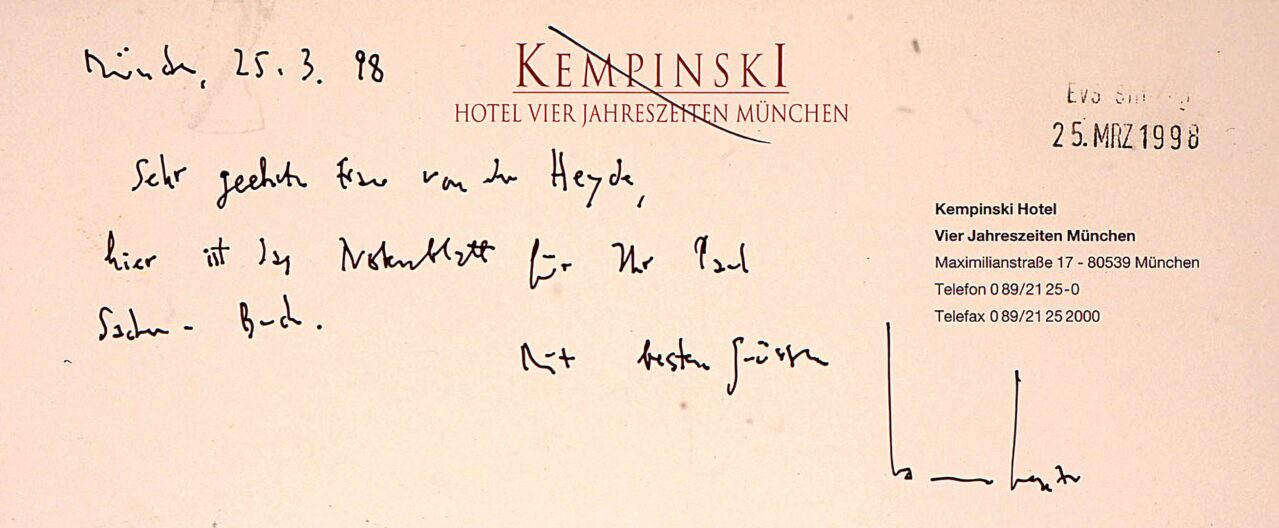 München, 25. 3. 98
KEMPINSKI
HOTEL VIER JAHRESZEITEN MÜNCHEN
25. MRZ 1998
Sehr geehrte Frau von der Heyde,
hier ist das Notenblatt für Ihr Paul
Sacher-Buch.
Mit besten Grüssen
Kempinski Hotel
Vier Jahreszeiten München
Maximilianstraße 17 - 80539 München
Telefon 0 89/21 25-0
Telefax 0 89/21 25 2000